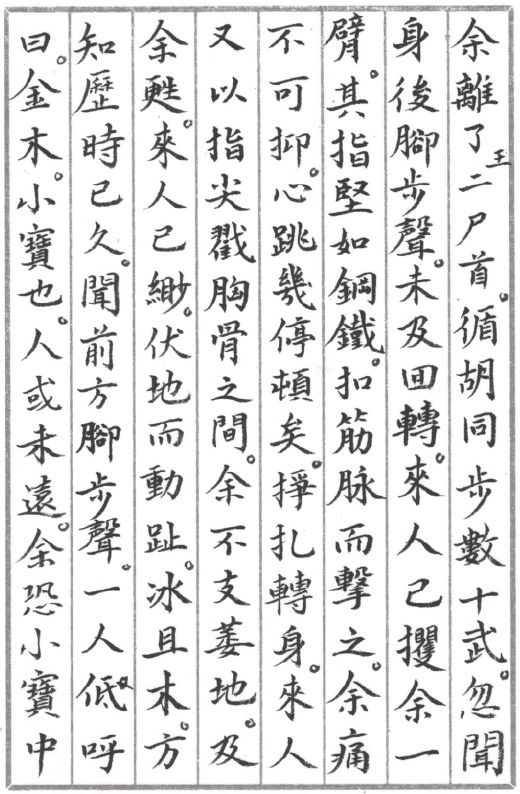 余離了王二尸首。循胡同步數十武。忽聞
身後腳步聲。未及囬轉。來人已攫余一
臂。其指堅如鋼鐵。扣筋脉而擊之。余痛
不可抑。心跳幾停頓矣。掙扎轉身。來人
又以指尖戳胸骨之間。余不支萎地。及
余甦。來人已緲。伏地而動趾。冰且木。方
知歷時已久。聞前方腳步聲。一人低呼
曰。金木。小寶也。人或未遠。余恐小寶中